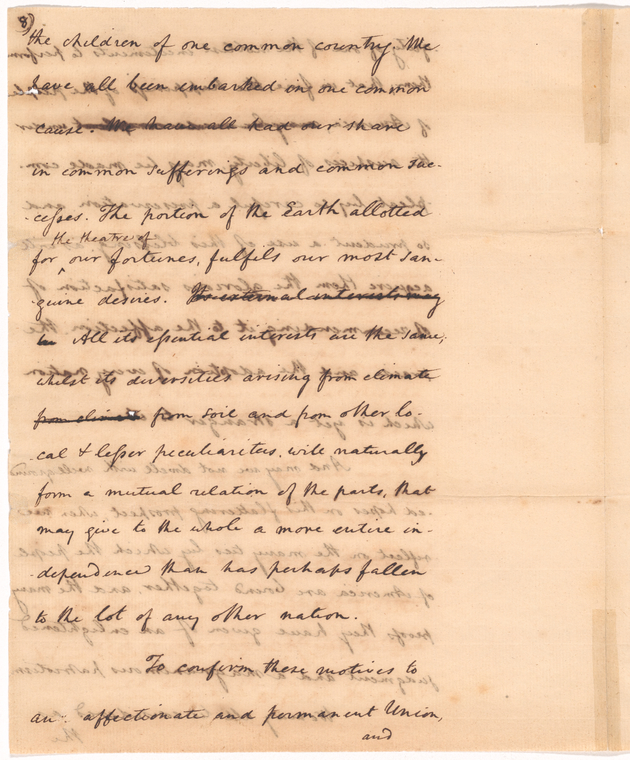 8)
the children of one common country. We
have all been embarked in one common
cause. We have all had our share
in common sufferings and common suc-
-cesses. The portion of the Earth allotted
the theatre of
for ^ our fortunes, fulfils our most san-
-guine desires. Its external interests may
be All its essential interests are the same;
whilst its diversities arising from climate
from climate from soil and from other lo-
-cal & lesser peculiarities, will naturally
form a mutual relation of the parts, that
may give to the whole a more entire in-
-dependence than has perhaps fallen
to the lot of any other nation.
To confirm these motives to
an affectionate and permanent Union,
and